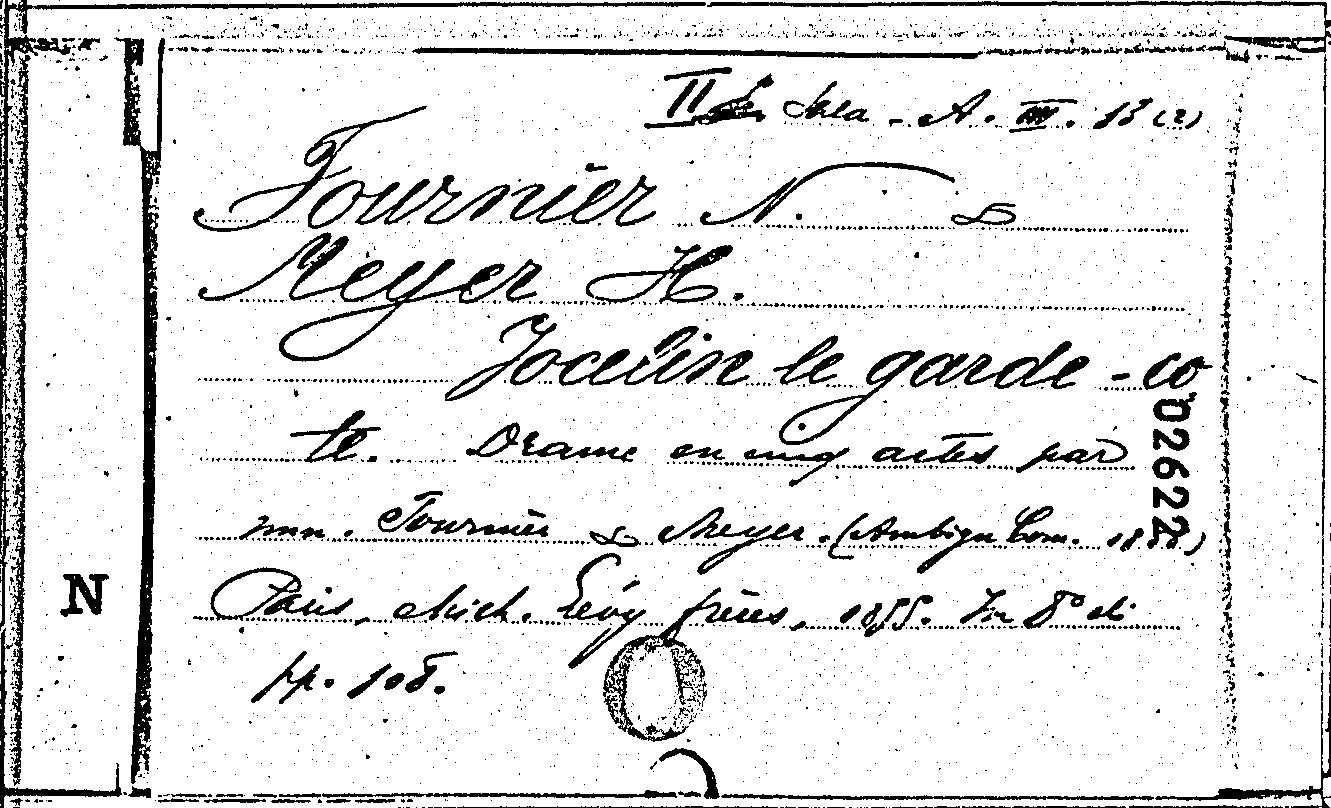 II Sala - A. III. 13 (2)
Fournier N. &
Meyer H.
Jocelin le garde-co
te. Drame en cinq actes par
mm. Fournier & Meyer. (Ambigu Com.
02622
Paris, Mich. Lévy frères, 1855. In 8° di
pp. 108.
N